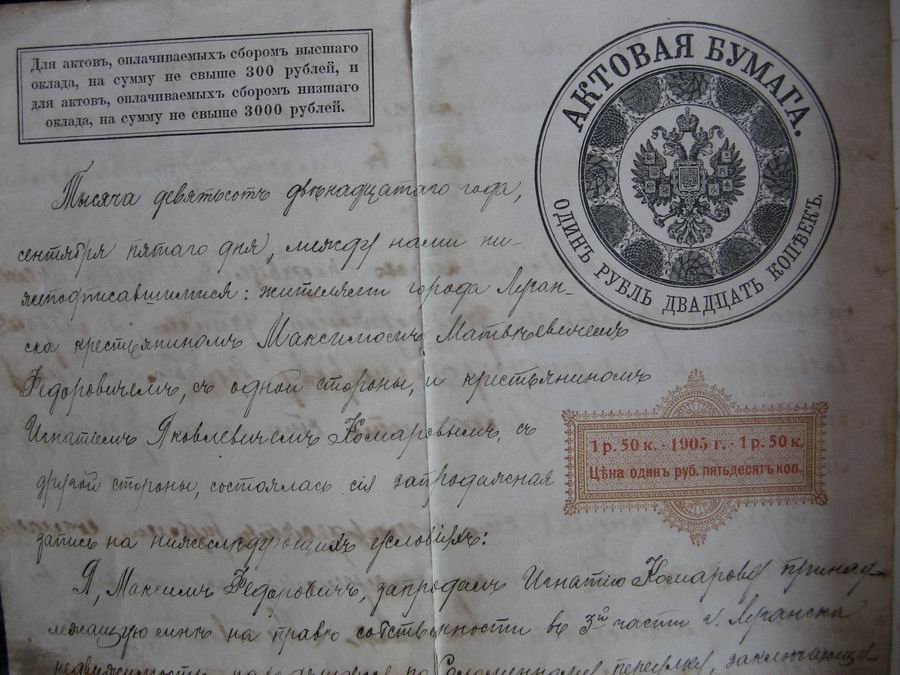 Для актовъ, оплачиваемыхъ сборомъ высшаго
оклада, на сумму не свыше 300 рублей, и
для актовъ, оплачиваемыхъ сборомъ низшаго
оклада, на сумму не свыше 3000 рублей.
АКТОВАЯ БУМАГА.
ОДИНЪ РУБЛЬ ДВАДЦАТЬ КОПѢЕКЪ.
Тысяча девятьсотъ двѣнадцатаго года,
сентября пятаго дня, между нами ни-
жеподписавшимися: жителями города Луган-
ска крестьяниномъ Максимомъ Матвѣевичемъ
Федоровичемъ, съ одной стороны, и крестьяниномъ
Игнатіемъ Яковлевичемъ Комаровымъ, съ
другой стороны, состоялась сія запродажная
запись на нижеслѣдующихъ условіяхъ:
1 р. 50 к. - 1905 г. - 1 р. 50 к.
Цѣна одинъ руб. пятьдесятъ коп.
Я, Максимъ Федоровичъ, запродалъ Игнатію Комарову принад-
лежащую мнѣ на правѣ собственности въ 3й части г. Луганска
недвижимость, по переулку, заключающе-